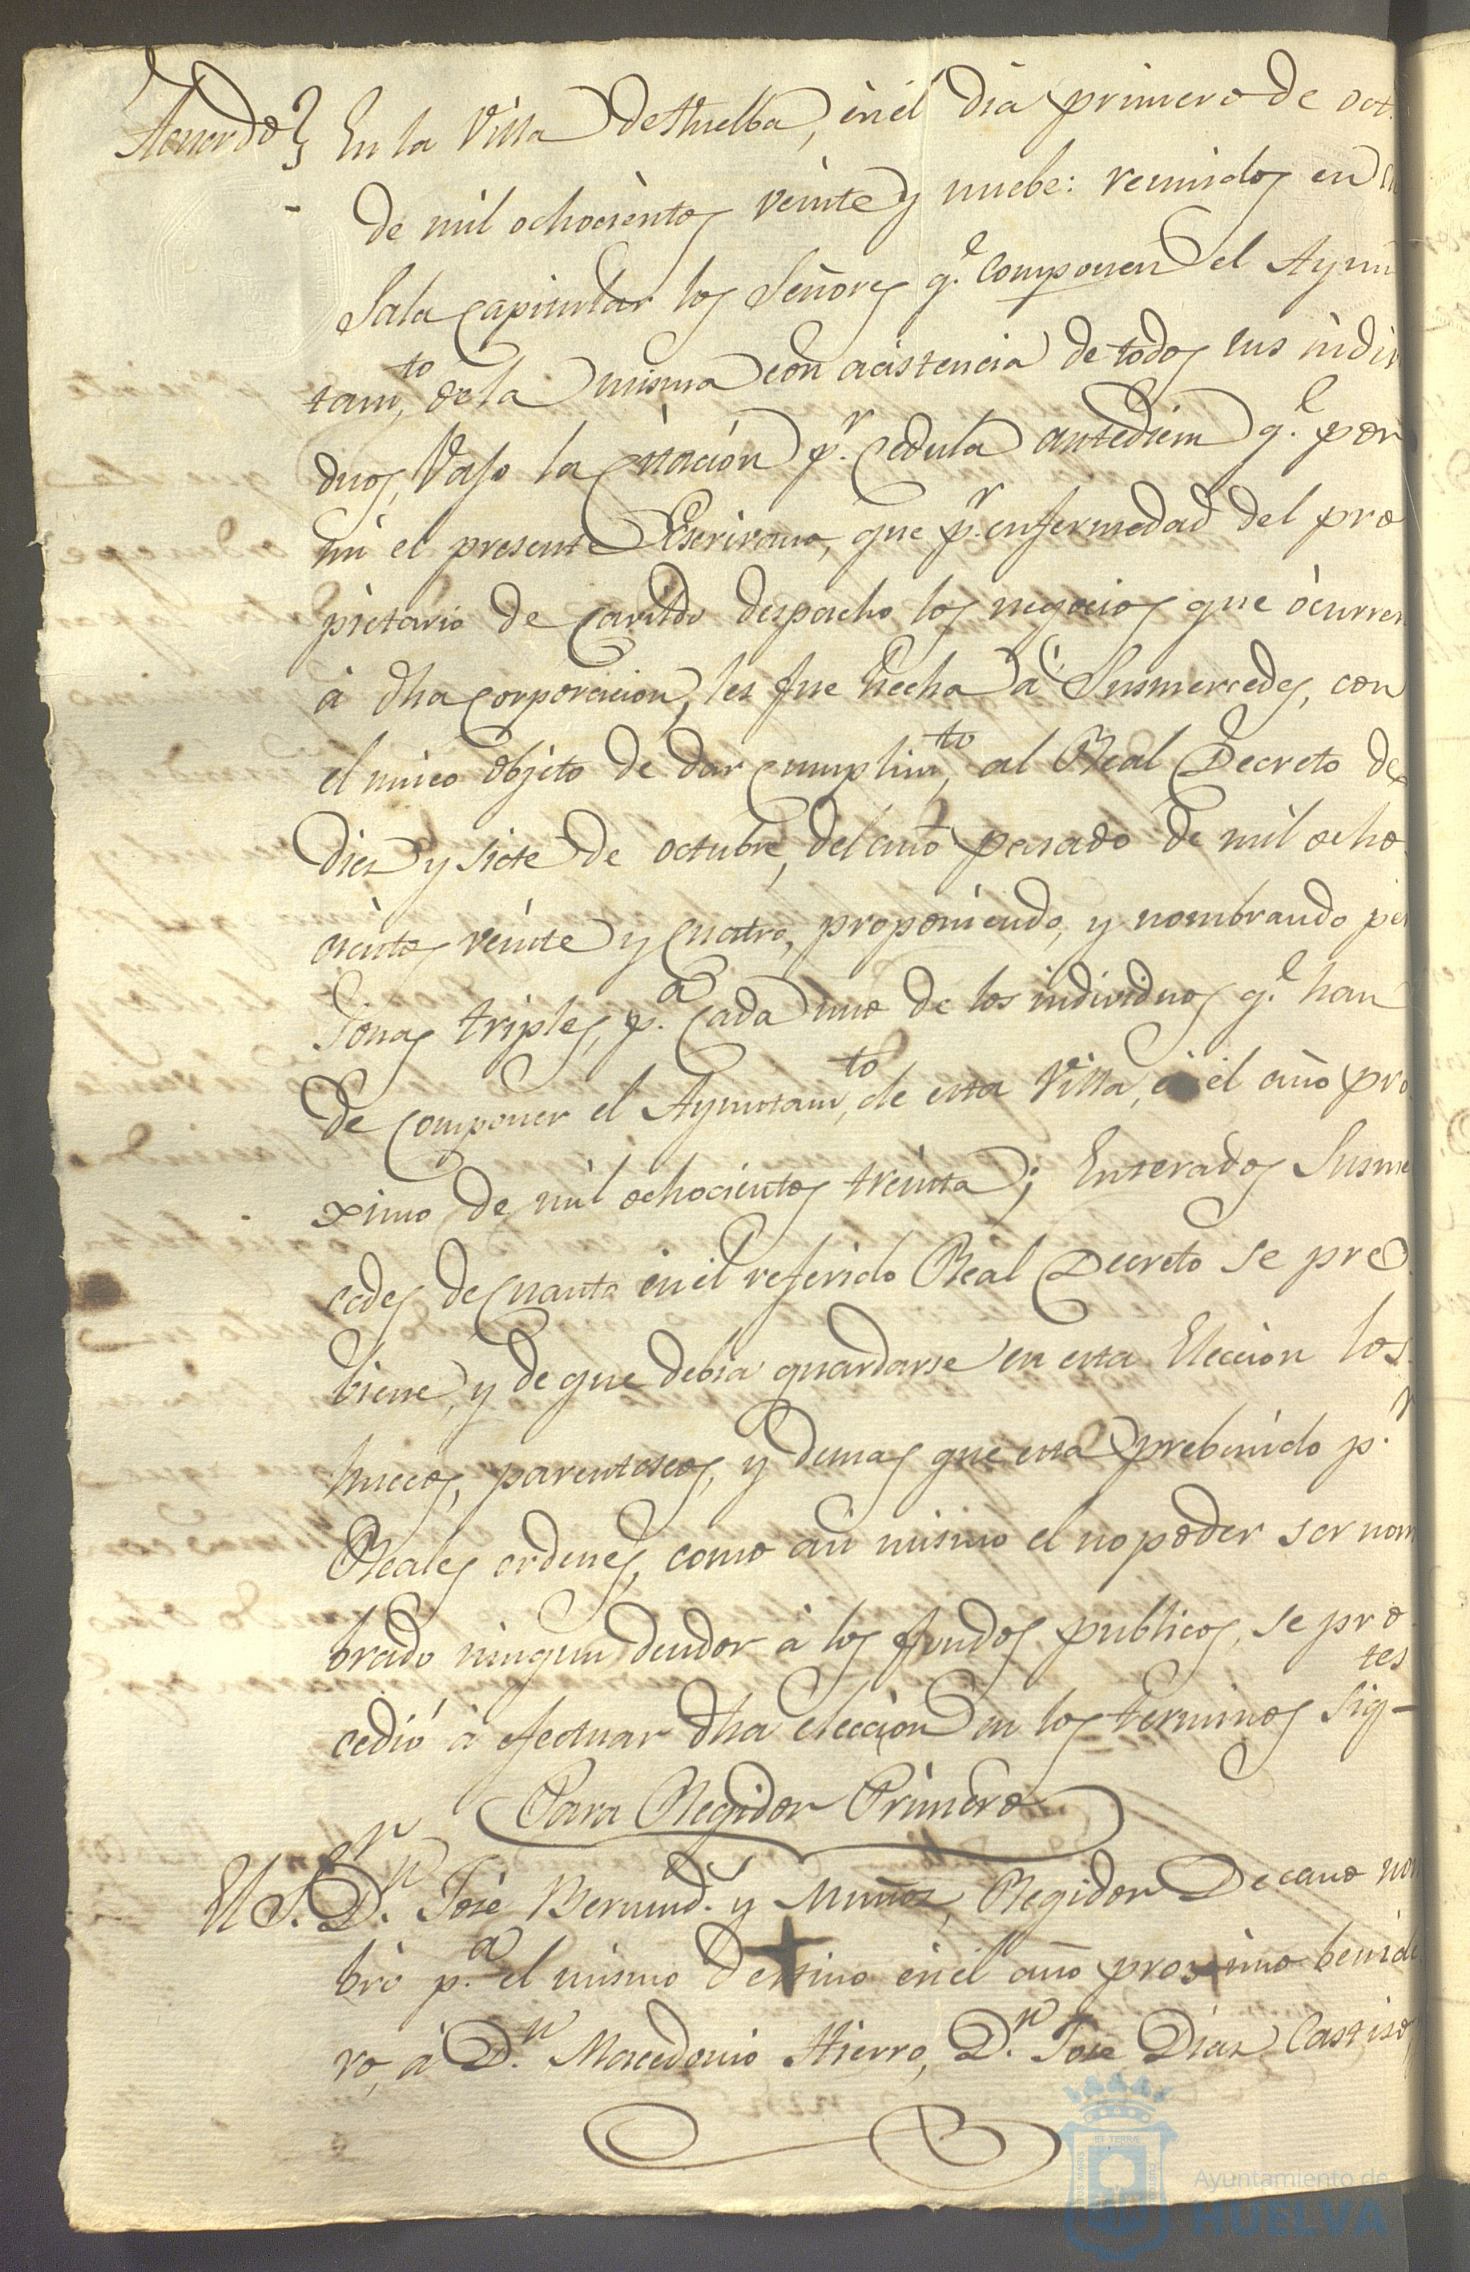 Acuerdo} En la Villa de Huelba, en el dia primero de oct.
de mil ochocientos veinte y nuebe: reunidos en
Sala Capitular los Señores q.e componen el Ayun
tam.to de la misma con acistencia de todos sus indivi
duos, Vajo la Citación p.r Cedula antediem q.e por
mi el presente Escrivano, que p.r enfermedad del pro
pietario de Cavildo despacho los negocios que ocurren
à dha Corporacion, les fue hecha à Susmercedes, con
el unico objeto de dar Cumplim.to al Real Decreto de
Diez y siete de octubre, del año pasado de mil ocho
cientos veinte y Cuatro, proponiendo, y nombrando per
sonas triples, p.a Cada uno de los individuos q.e han
de Componer el Ayuntam.to de esta Villa, en el año pro
ximo de mil ochocientos treinta; Enterados Susmer
cedes de Cuanto en el referido Real Decreto se pre
biene, y de que debia guardarse en esta Eleccion los
huecos, parentescos, y demas que esta prebenido p.r
Reales ordenes, como asi mismo el no poder ser nom
brado ningun deudor à los fondos publicos, se pro
cedió à efectuar dha elección en los terminos Sig-tes
Para Regidor Primero
El S.r D.n José Bermud.z y Muñoz, Regidor Decano nom
bró p.a el mismo destino en el año proximo benide
ro, à D.n Macedonio Hierro, D.n José Diaz Castiso,
Ayuntamiento de
HUELVA